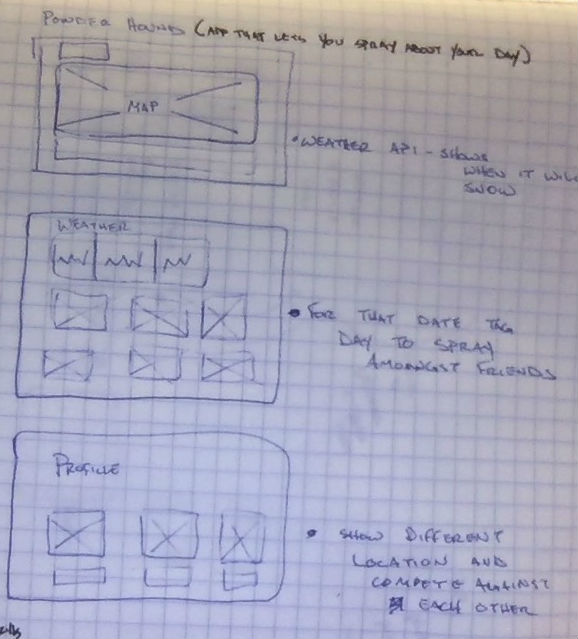 POWDER HOUND (APP THAT LETS YOU SPRAY ABOUT YOUR DAY)
MAP
• WEATHER API - SHOWS
WHEN IT WILL
SNOW
WEATHER
• FOR THAT DATE TAG
DAY TO SPRAY
AMONGST FRIENDS
PROFILE
• SHOW DIFFERENT
LOCATION AND
COMPETE AGAINST
EACH OTHER